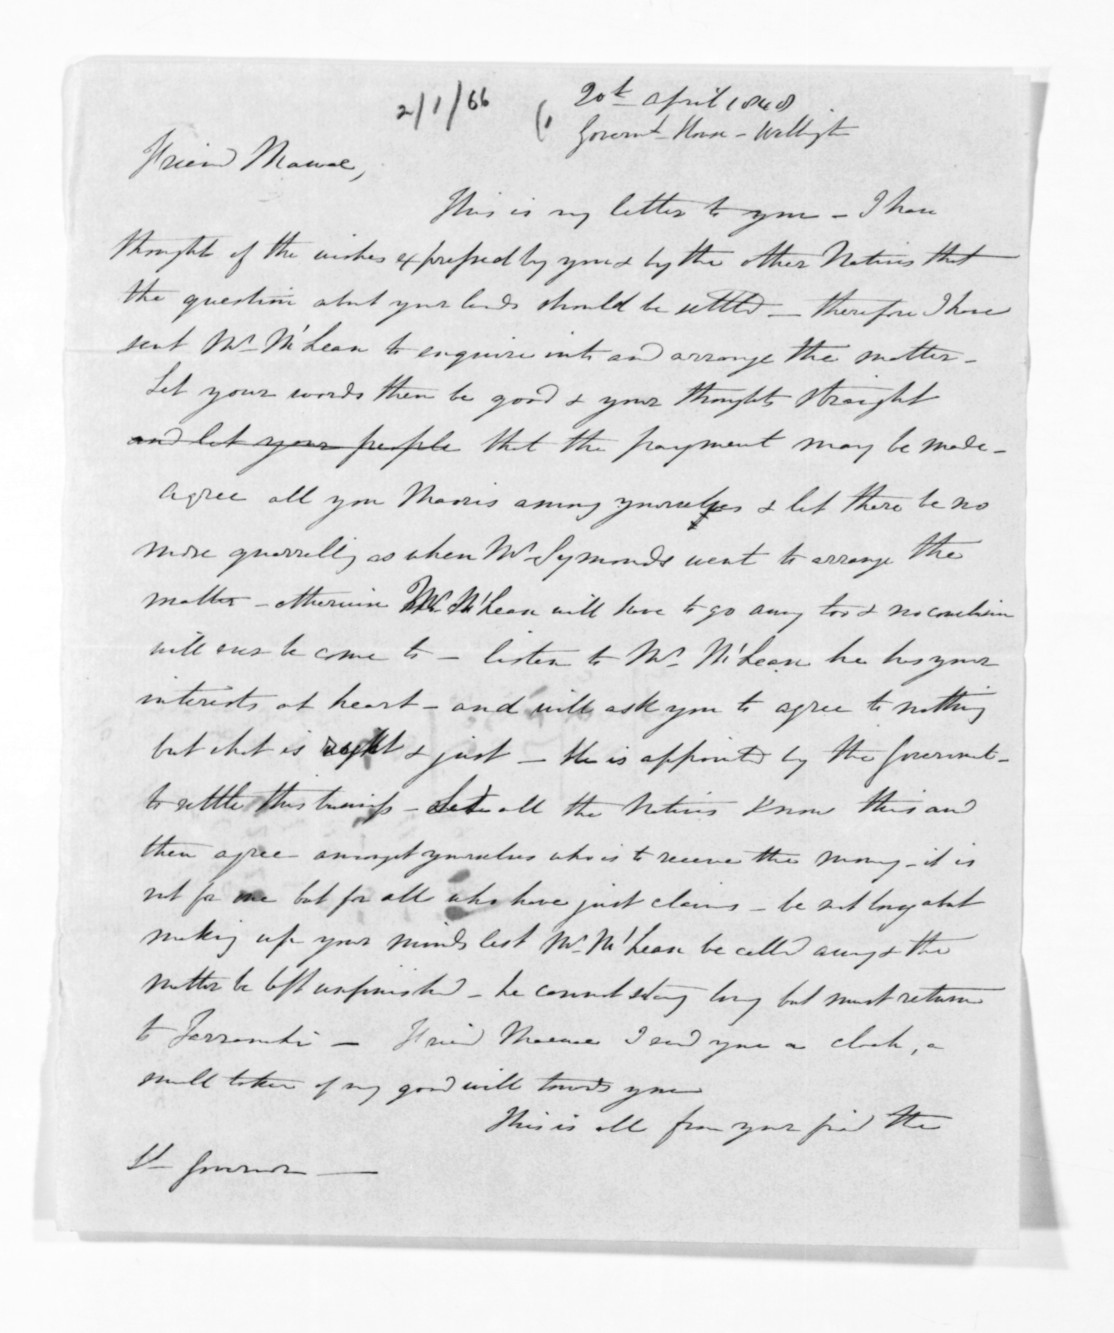 2/1/66
20th April 1848
Governt House - Wellingtn
Friend Mawae,
This is my letter to you - I have
thought of the wishes expressed by you & by the other Natives that
the question abut your lands should be settled - therefore I have
sent Mr. McLean to enquire into and arrange the matter -
Let your words then be good & your thoughts straight
and let your people that the payment may be made -
Agree all you Maoris among yourselves & let there be no
more quarrelling as when Mr Symonds went to arrange the
matter - otherwise Mr McLean will have to go away too & no conclusion
will ever be come to - listen to Mr. McLean he has your
interests at heart - and will ask you to agree to nothing
but what is right & just - He is appointed by the Government -
to settle this business - Let all the Natives know this and
then agree amongst yourselves who is to receive the money - it is
not for one but for all who have just claims - be not long abut
making up your minds lest Mr. McLean be called away & the
matter be left unfinished - he cannot stay long but must return
to Tarranaki - Friend Mawae I send you a cloak, a
small token of my good will towards you
This is all from your friend the
Lt Governor -